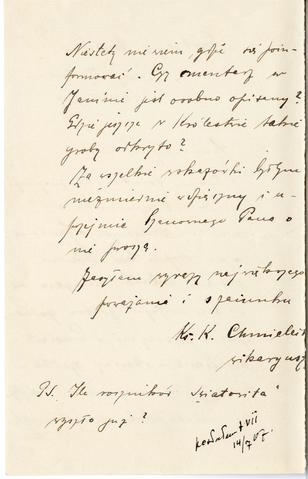 Niestety nie wiem, gdzie się poin-
formować. Czy cmentarz w
Janinie jest osobno opisany?
Gdzie jeszcze w Królestwie takie
groby odkryto?
Za wszelkie wskazówki byłbym
niezmiernie wdzięczny i u-
przejmie Szanownego Pana o
nie proszę.
Załączam wyrazy największego
poważania i szacunku
Ks. K. Chmielecki
wikaryusz
PS. Ile roczników Światowita
wyszło już?
VII
14/7 07.